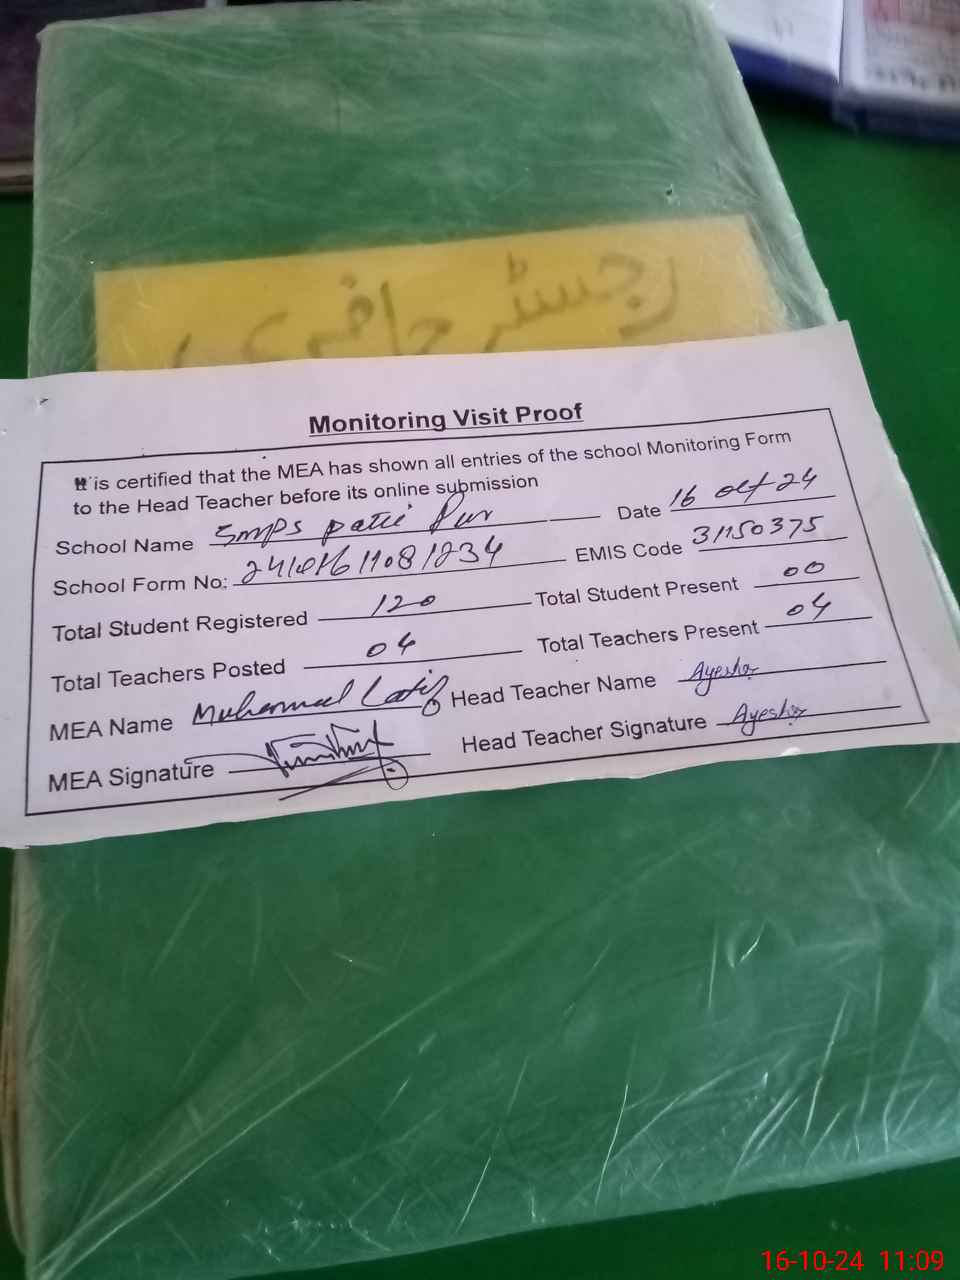 رجسٹر حاضری
Monitoring Visit Proof
It is certified that the MEA has shown all entries of the school Monitoring Form
to the Head Teacher before its online submission
School Name Smps Date 16 oct 24
School Form No: EMIS Code 31150375
Total Student Registered 120 Total Student Present 00
Total Teachers Posted 04 Total Teachers Present 04
MEA Name Muhammad Latif Head Teacher Name Ayesha
MEA Signature Head Teacher Signature Ayesha
16-10-24 11:09